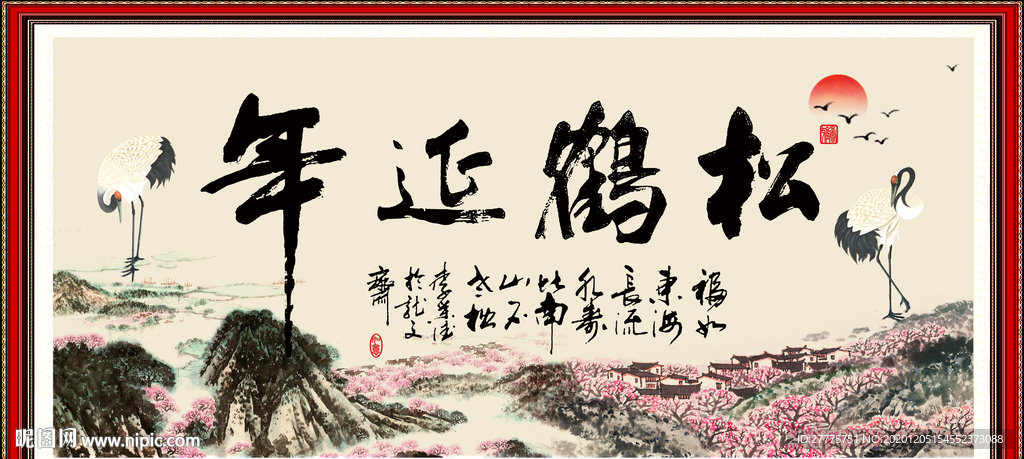 松鶴延年
福如
東海
長流
水壽
比南
山不
老松
李
於龍文
齋
昵图网 www.nipic.com
ID:27775751 NO:20201205154552373088